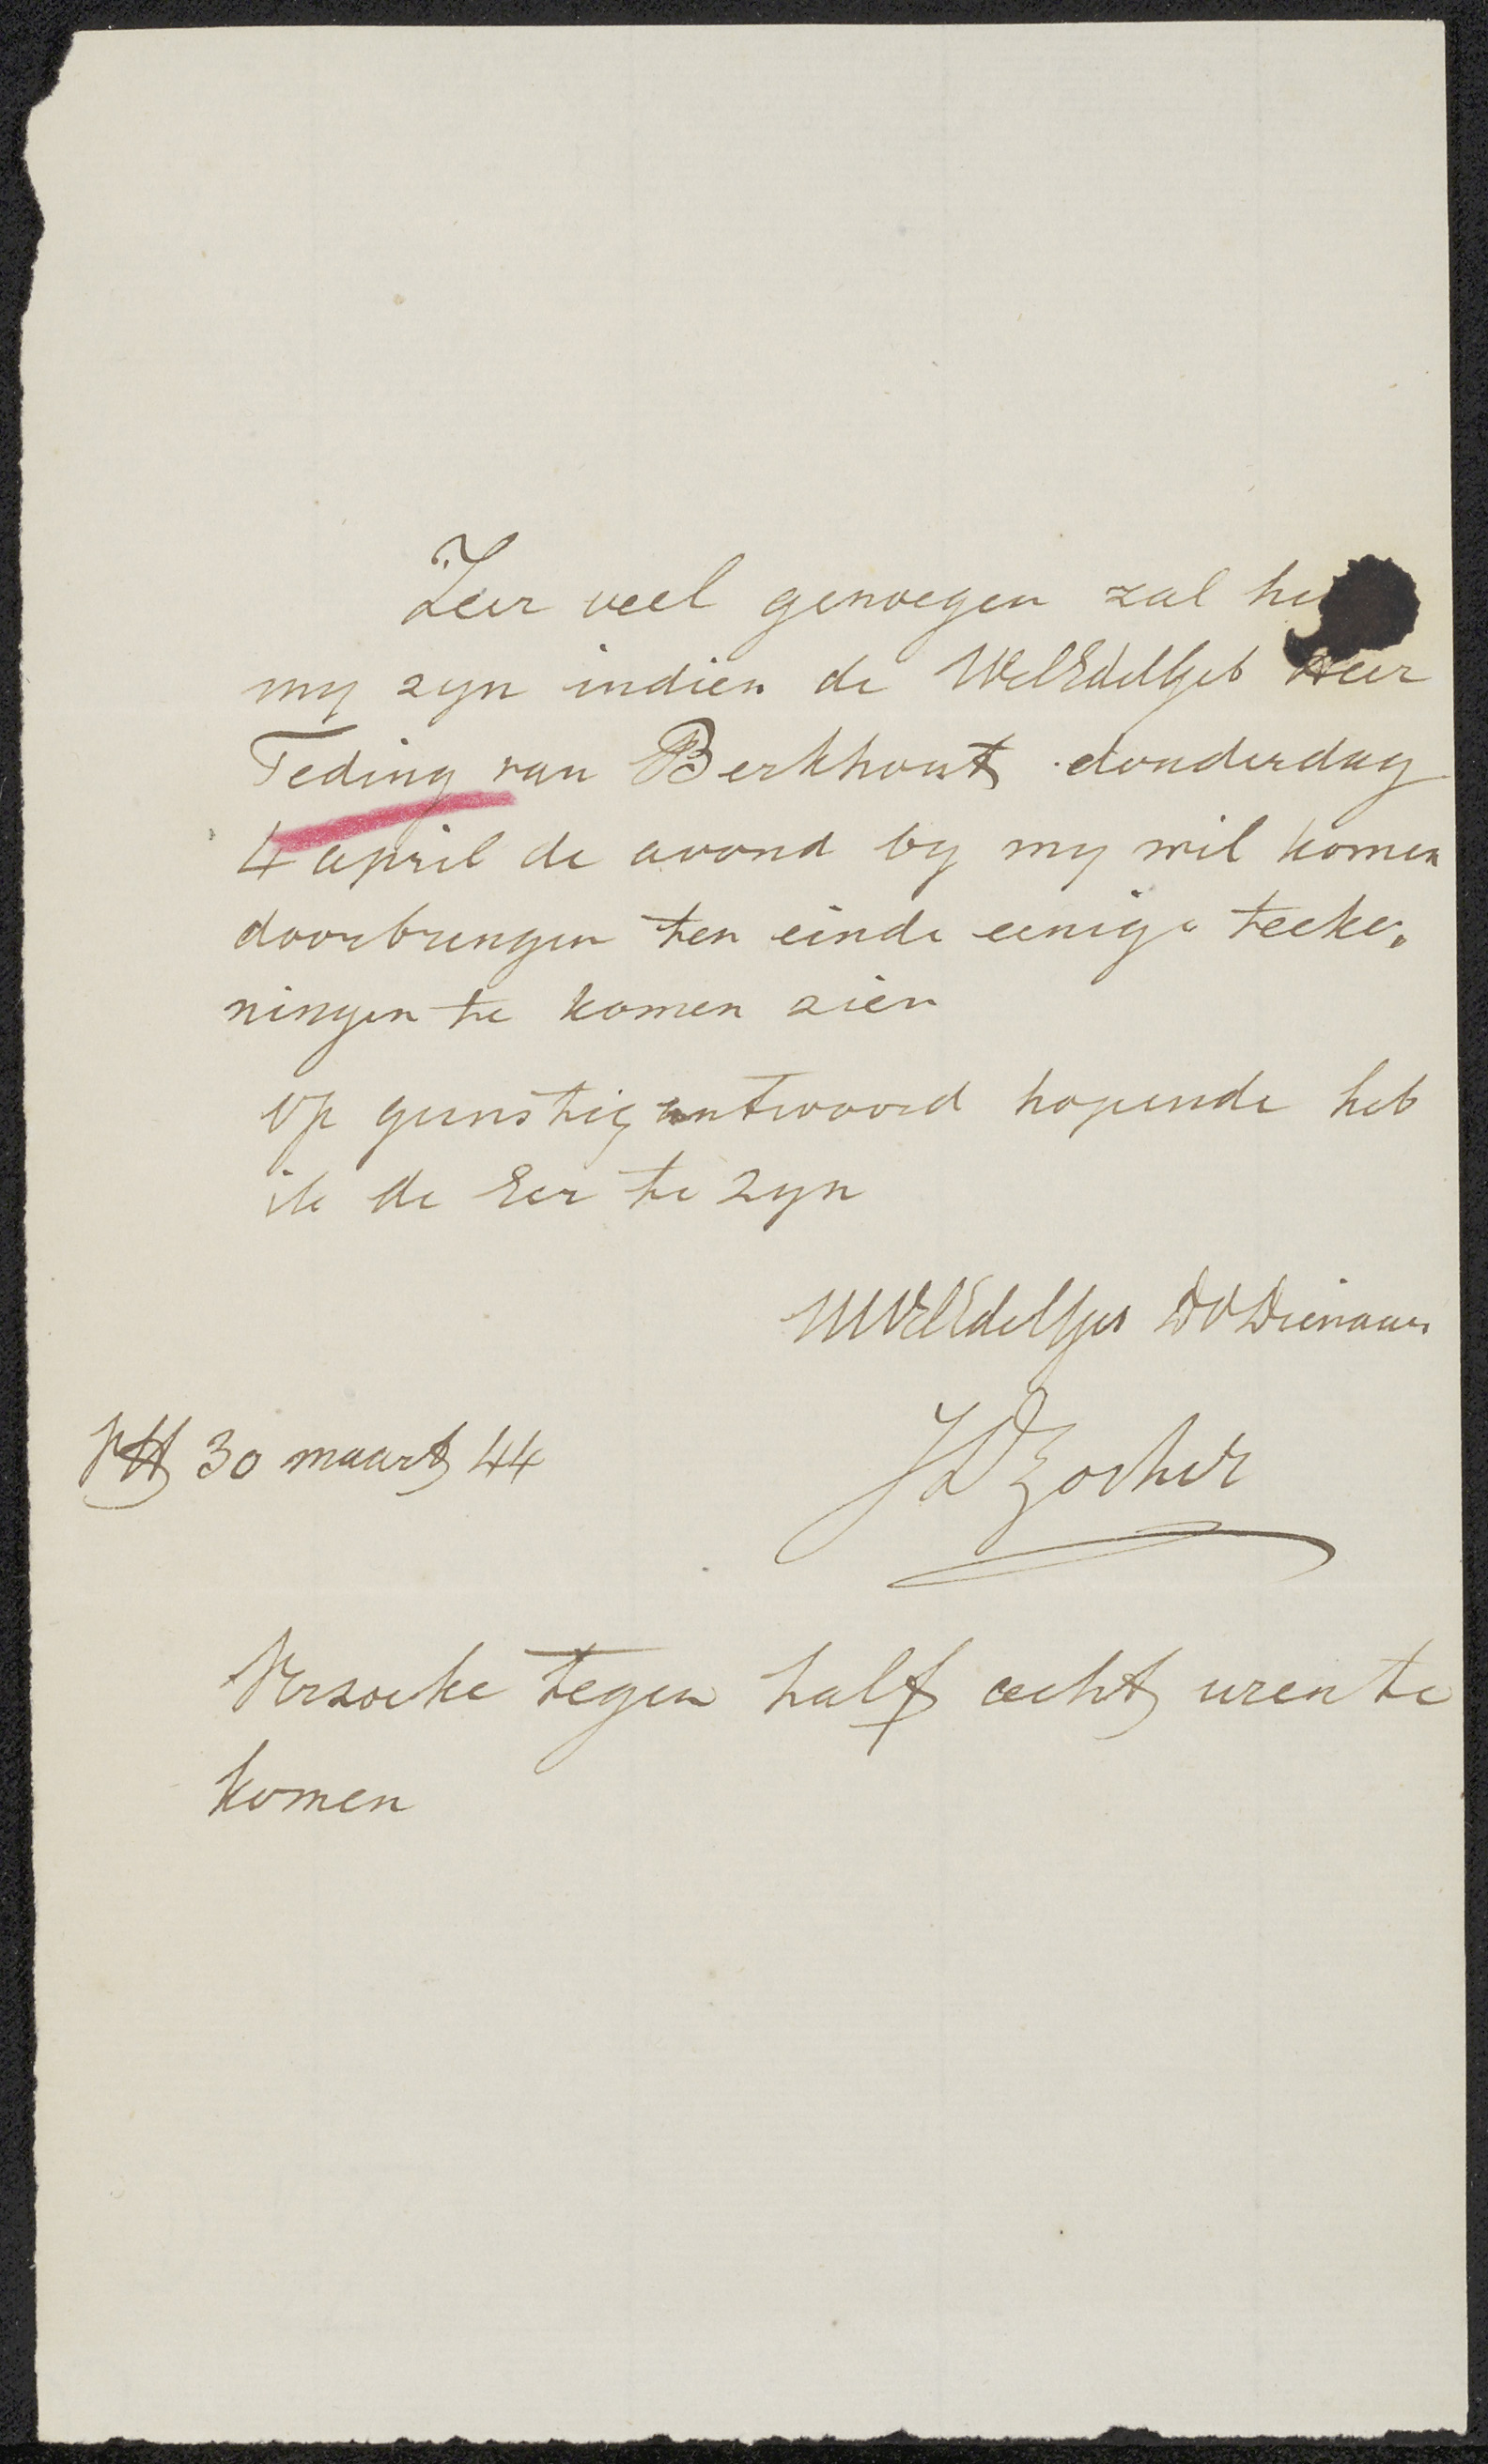 Zeer veel genoegen zal he
my zyn indien de WelEdelGeb Heer
Teding van Berkhout donderdag
4 april de avond by my wil komen
doorbrengen ten einde eenige teeke,
ningen te komen zien
Op gunstig antwoord hopende heb
ik de Eer te zyn
UWelEdelGeb DVDienaar
30 maart 44
JDZocher
Verzoeke tegen half acht uren te
komen